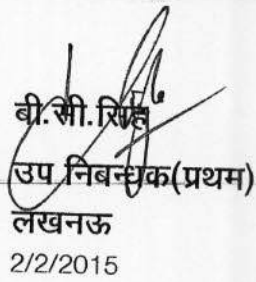 बी.सी.सिंह
उप निबन्धक(प्रथम)
लखनऊ
2/2/2015